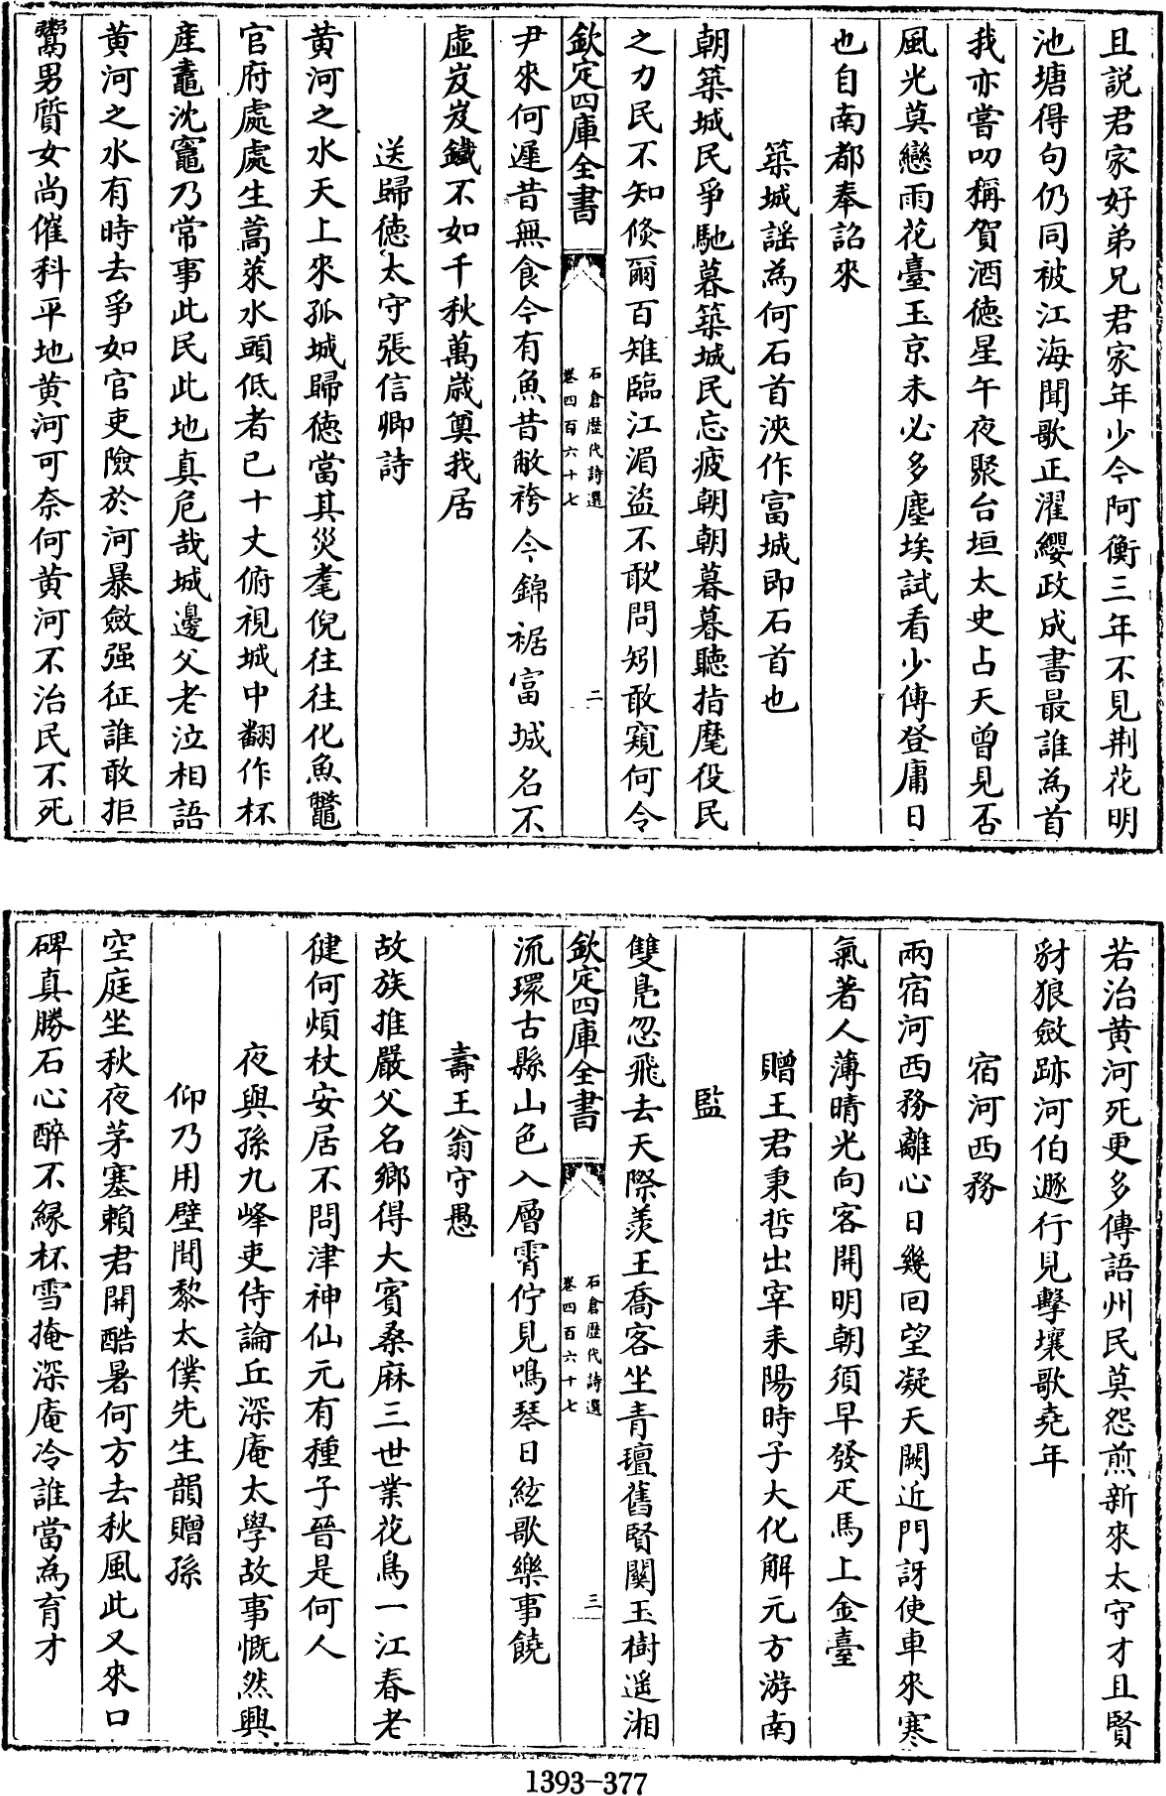 且説君家好弟兄君家年少今阿衡三年不見荆花明
池塘得句仍同被江海聞歌正濯纓政成書最誰為首
我亦嘗叨稱賀酒徳星午夜聚台垣太史占天曾見否
風光莫戀雨花臺玉京未必多塵埃試看少傅登庸日
也自南都奉詔來
築城謡為何石首浹作富城即石首也
朝築城民爭馳暮築城民忘疲朝朝暮暮聽指麾役民
之力民不知倐爾百雉臨江湄盗不敢問矧敢窺何令
欽定四庫全書
石倉歴代詩選
卷四百六十七
二
尹來何遲昔無食今有魚昔敝袴今錦裾富城名不
虚岌岌鐡不如千秋萬歳奠我居
送歸徳太守張信卿詩
黄河之水天上來孤城歸徳當其災耄倪往往化魚鼈
官府處處生蒿萊水頭低者已十丈俯視城中翻作杯
産鼃沈竈乃常事此民此地真危哉城邊父老泣相語
黄河之水有時去爭如官吏險於河暴斂强征誰敢拒
鬻男質女尚催科平地黄河可奈何黄河不治民不死
若治黄河死更多傳語州民莫怨煎新來太守才且賢
豺狼斂跡河伯遯行見擊壤歌堯年
宿河西務
兩宿河西務離心日幾回望凝天闕近門訝使車來寒
氣著人薄晴光向客開明朝須早發疋馬上金臺
贈王君秉哲出宰耒陽時子大化解元方游南
監
雙鳬忽飛去天際羨王喬客坐青氊舊賢闗玉樹遥湘
欽定四庫全書
石倉歴代詩選
卷四百六十七
三
流環古縣山色入層霄佇見鳴琴日絃歌樂事饒
壽王翁守愚
故族推嚴父名鄉得大賓桑麻三世業花鳥一江春老
健何煩杖安居不問津神仙元有種子晉是何人
夜與孫九峰吏侍論丘深庵太學故事慨然興
仰乃用壁間黎太僕先生韻贈孫
空庭坐秋夜茅塞賴君開酷暑何方去秋風此又來口
碑真勝石心醉不縁杯雪掩深庵冷誰當為育才
1393-377